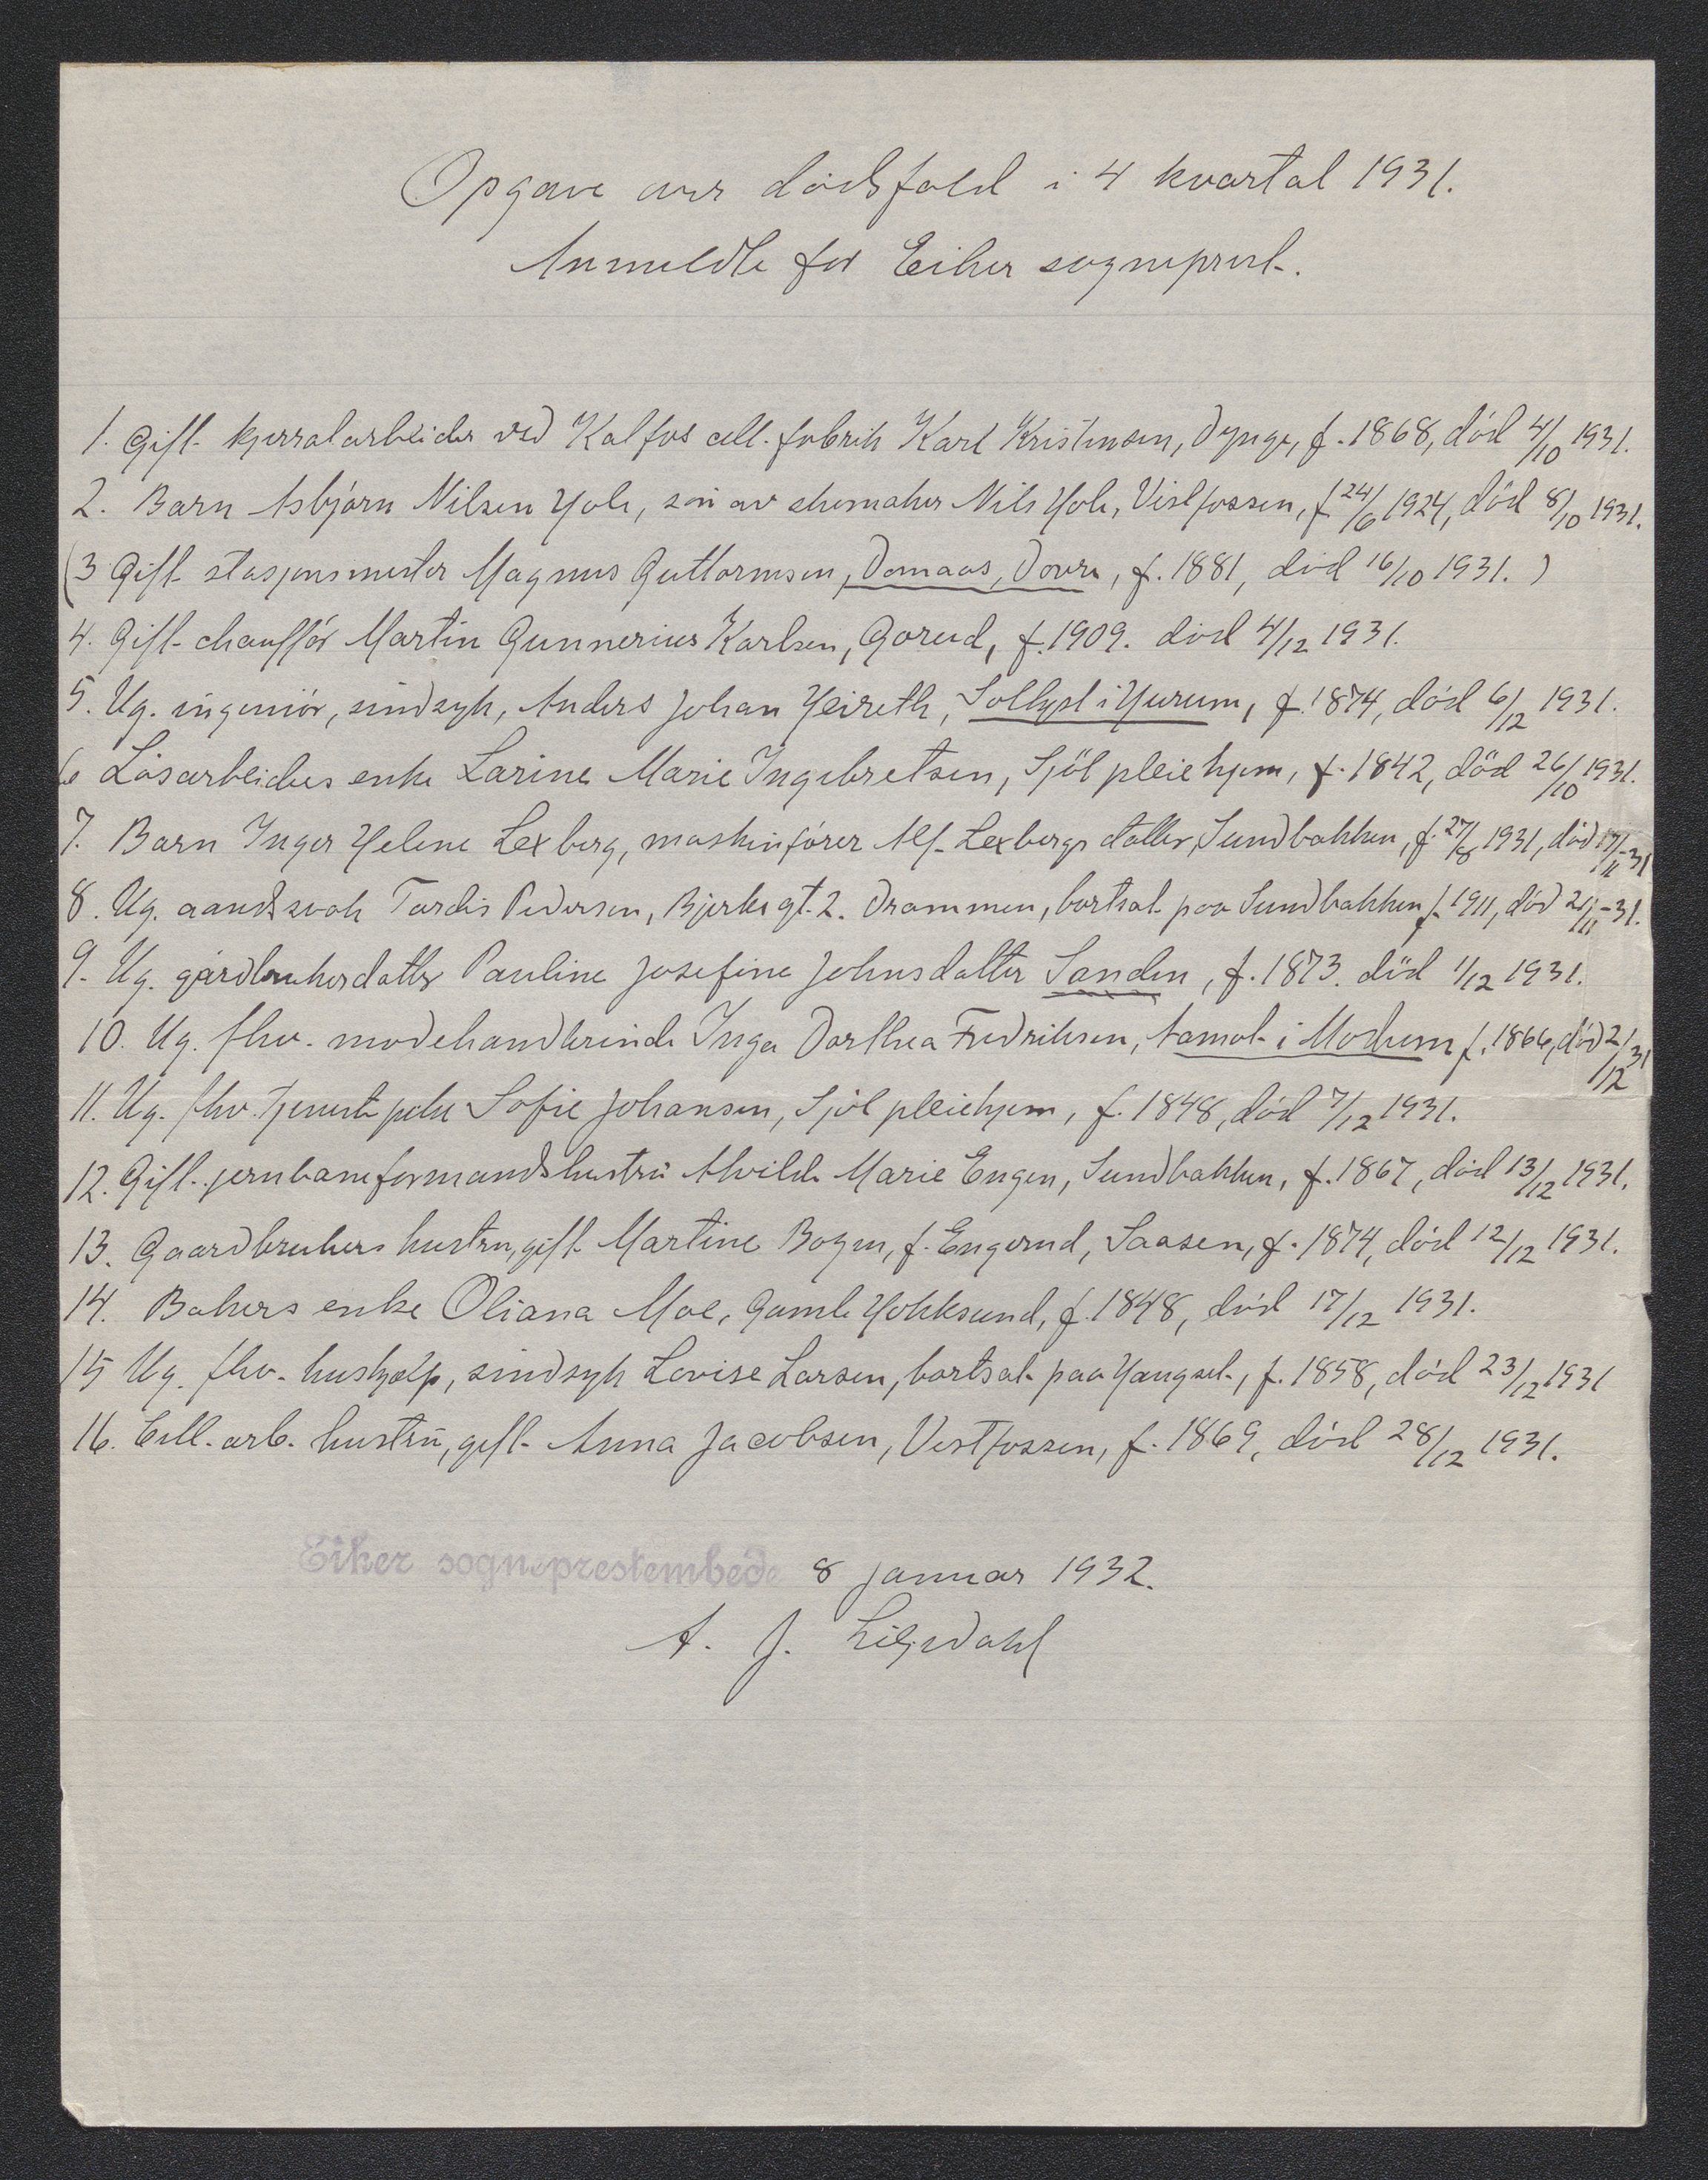 Opgave over dödsfald i 4 kvartal 1931.
Anmeldte for Eiker sogneprest.
1. Gift. kjerratarbeider ved Kalfos cell. fabrik Karl Kristensen, Dynge, f. 1868, död 4/10 1931.
2. Barn Asbjörn Nilsen Hole, sön av skomaker Nils Hole, Vestfossen, f 24/6 1924, död 8/10 1931.
(3 Gift stasjonsmester Magnus Guttormsen, Domaas, Dovre, f. 1881, död 16/10 1931. )
4. Gift chaufför Martin Gunnerius Karlsen, Gorud, f. 1909. död 4/12 1931.
5. Ug. ingeniör, sindsyk, Anders Johan Heireth, Sollyst i Hurum, f. 1874, död 6/12 1931.
6 Lösarbeiders enke Larine Marie Ingebretsen, Sjöl pleiehjem, f. 1842, död 26/10 1931.
7. Barn Inger Helene Lexberg, maskinförer Alf Lexbergs datter, Sundbakken, f. 27/8 1931, död 17/11-31
8. Ug. aandssvak Tordis Pedersen, Bjerkegt. 2. Drammen, bortsat paa Sundbakken f. 1911, död 21/11-31.
9. Ug. gårdbrukerdatter Pauline Josefine Johnsdatter Sanden, f. 1873. död 1/12 1931.
10. Ug. fhv. modehandlerinde Inga Dorthea Fredriksen, Aamot i Modum f. 1866, död 2/12 31
11. Ug. fhv. tjenestepike Sofie Johansen, Sjöl pleiehjem, f. 1848, död 7/12 1931.
12. Gift. jernbaneformandshustru Alvilde Marie Engen, Sundbakken, f. 1867, död 13/12 1931.
13. Gaardbrukers hustru, gift Martine Bogen, f. Engerud, Saasen, f. 1874, död 12/12 1931.
14. Bakers enke Oliana Moe, Gamle Hokksund, f. 1848, död 17/12 1931.
15 Ug. fhv. hushjælp, sindsyk Lovise Larsen, bortsat paa Haugset, f. 1858, död 23/12 1931
16. Cell. arb. hustru, gift Anna Jacobsen, Vestfossen, f. 1869, död 28/12 1931.
Eiker sogneprestembede 8 januar 1932.
A. J.